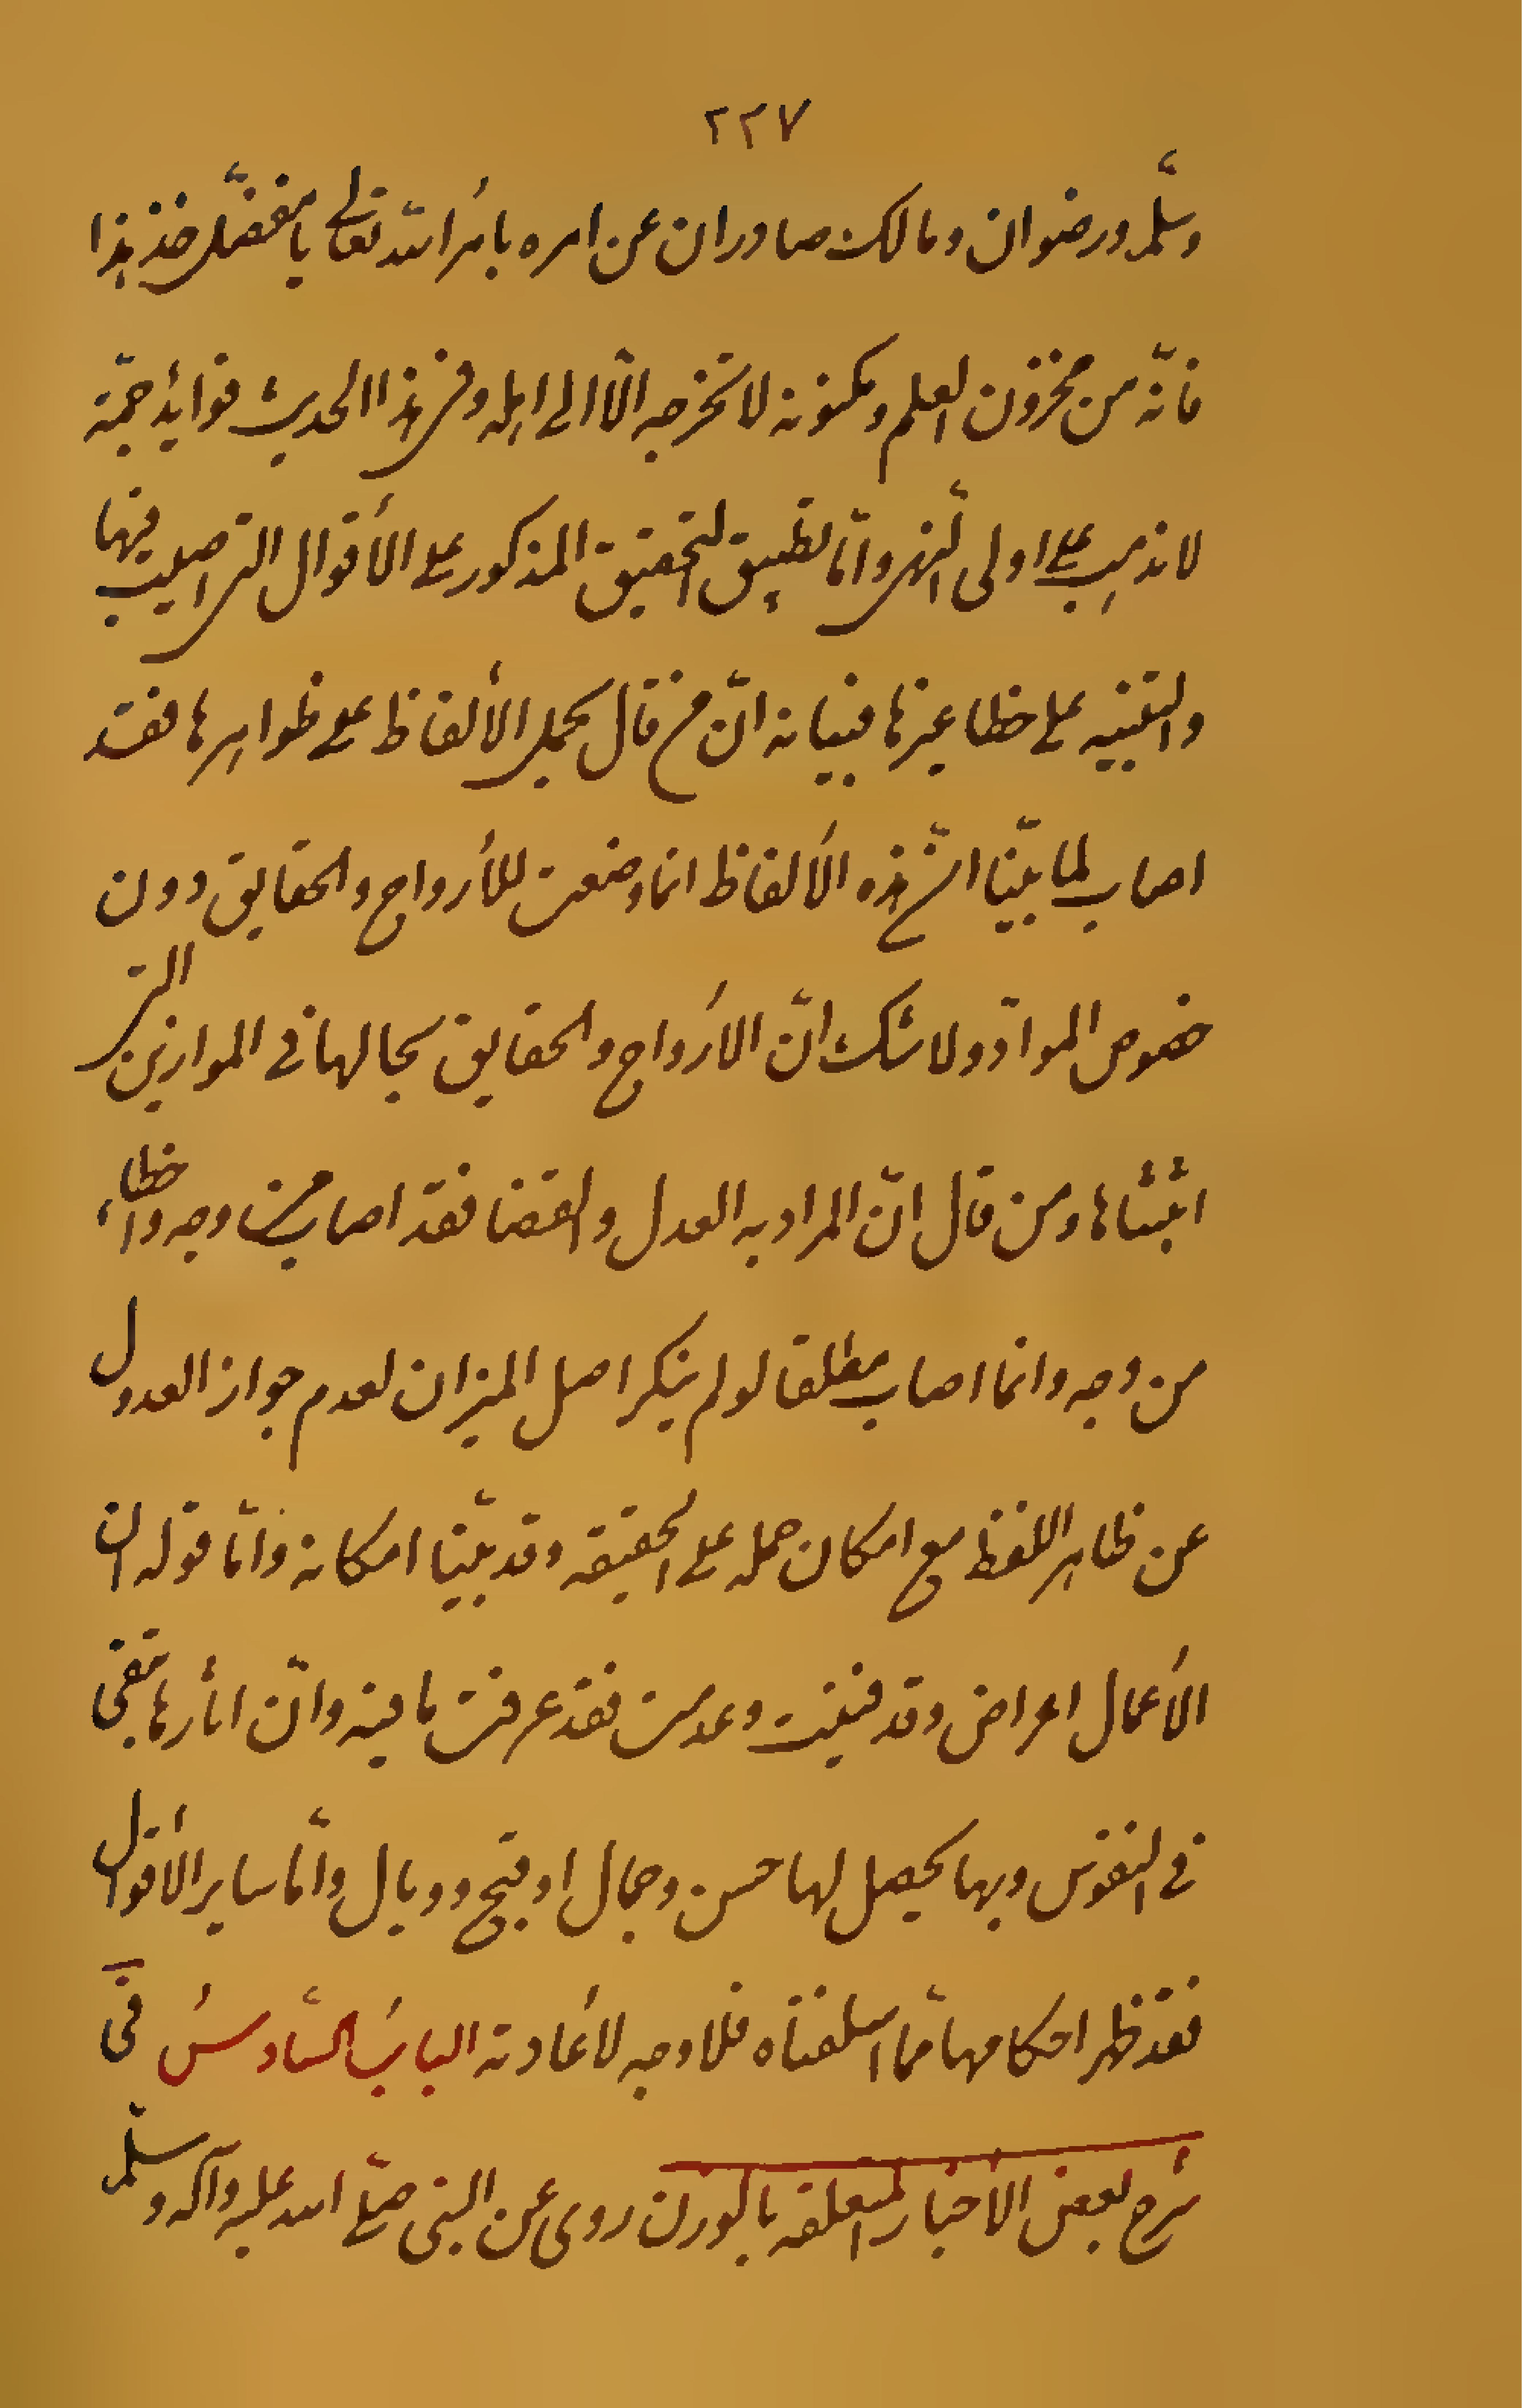 ٢٢٧
وسلّم ورضوان ومالك صادران عن امره بامر الله تعالى يا مفضّل خذ هذا
فانّه من مخزون العلم ومكنونه لا تخرجه الّا الى اهله وفي هذا الحديث فوايد جمّة
لا تذهب على اولى النهى وامّا تطبيق التحقيق المذكور على الأقوال التي اصيب فيها
والتنبيه على خطا غيرها فبيانه انّ من قال بحمل الألفاظ على ظواهرها فقد
اصاب لما بيّنا انّ هذه الألفاظ انما وضعت للأرواح والحقايق دون
خصوص الموادّ ولا شك انّ الأرواح والحقايق بحالها في الموازين التي
اثبتناها ومن قال انّ المراد به العدل والقضا فقد اصاب من وجه واخطاء
من وجه وانما اصاب مطلقا لو لم ينكر اصل الميزان لعدم جواز العدول
عن ظاهر اللفظ مع امكان حمله على الحقيقه وقد بيّنا امكانه وامّا قوله ان
الأعمال اعراض وقد فنيت وعدمت فقد عرفت ما فيه وانّ اثارها تبقى
في النفوس وبها يحصل لها حسن وجمال او قبح ووبال وامّا ساير الأقوال
فقد ظهر احكامها ممّا اسلفناه فلا وجه لأعادته البابُ السّادسُ في
شرح بعض الأخبار المتعلقه بالوزن روى عن النبى صلّى الله عليه وآله وسلّم